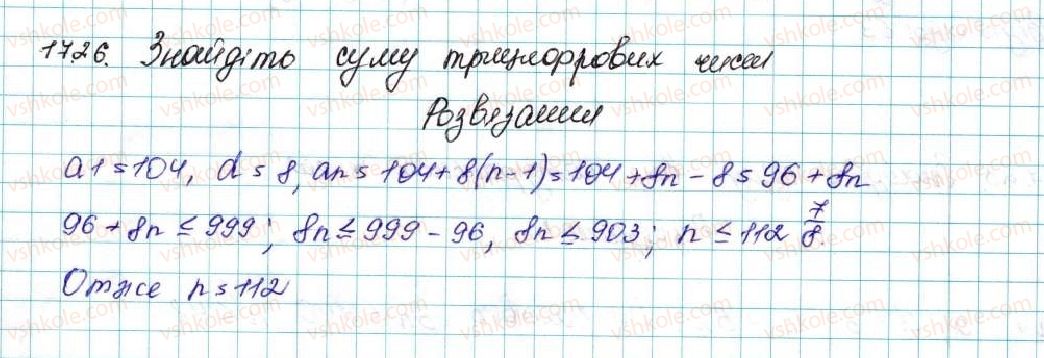 1726. Знайдіть суму трицифрових чисел
Розвязання
a1 = 104, d = 8, an = 104 + 8(n-1) = 104 + 8n - 8 = 96 + 8n.
96 + 8n ≤ 999; 8n ≤ 999 - 96, 8n ≤ 903; n ≤ 112 7/8.
Отже n = 112